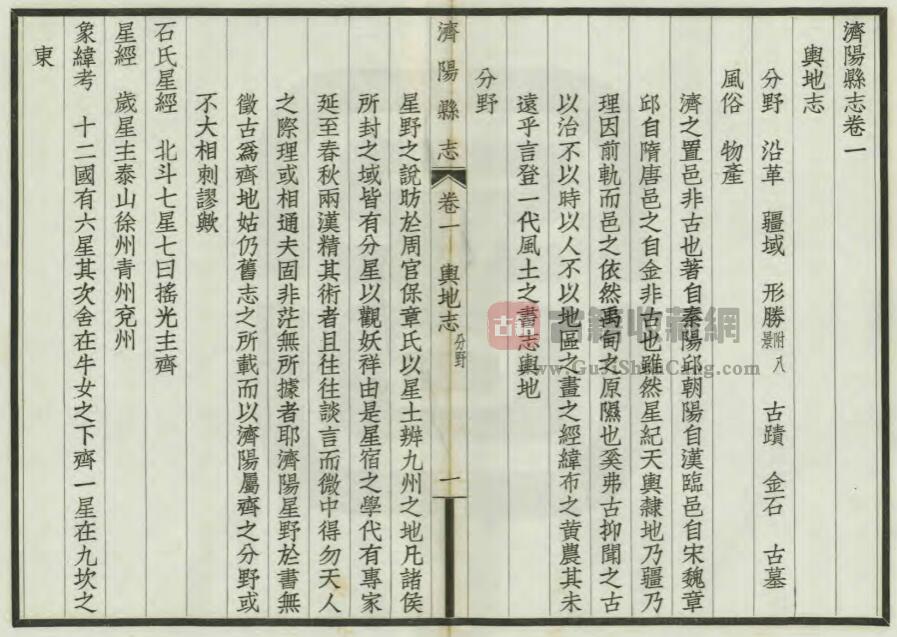 濟陽縣志卷一
輿地志
分野 沿革 疆域 形勝附八景 古蹟 金石 古墓
風俗 物產
濟之置邑非古也著自秦陽邱朝陽自漢臨邑自宋魏章
邱自隋唐邑之自金非古也雖然星紀天輿隸地乃疆乃
理因前軌而邑之依然禹甸之原隰也奚弗古抑聞之古
以治不以時以人不以地區之畫之經緯布之黃農其未
遠乎言登一代風土之書志輿地
分野
濟陽縣志 卷一 輿地志 分野 一
星野之說昉於周官保章氏以星土辨九州之地凡諸侯
所封之域皆有分星以觀妖祥由是星宿之學代有專家
延至春秋兩漢精其術者且往往談言而微中得勿天人
之際理或相通夫固非茫無所據者耶濟陽星野於書無
徵古為齊地姑仍舊志之所載而以濟陽屬齊之分野或
不大相刺謬歟
石氏星經 北斗七星七曰搖光主齊
星經 歲星主泰山徐州青州兗州
象緯考 十二國有六星其次舍在牛女之下齊一星在九坎之
東
古籍 古籍收藏網
www.GuJiShuCang.com